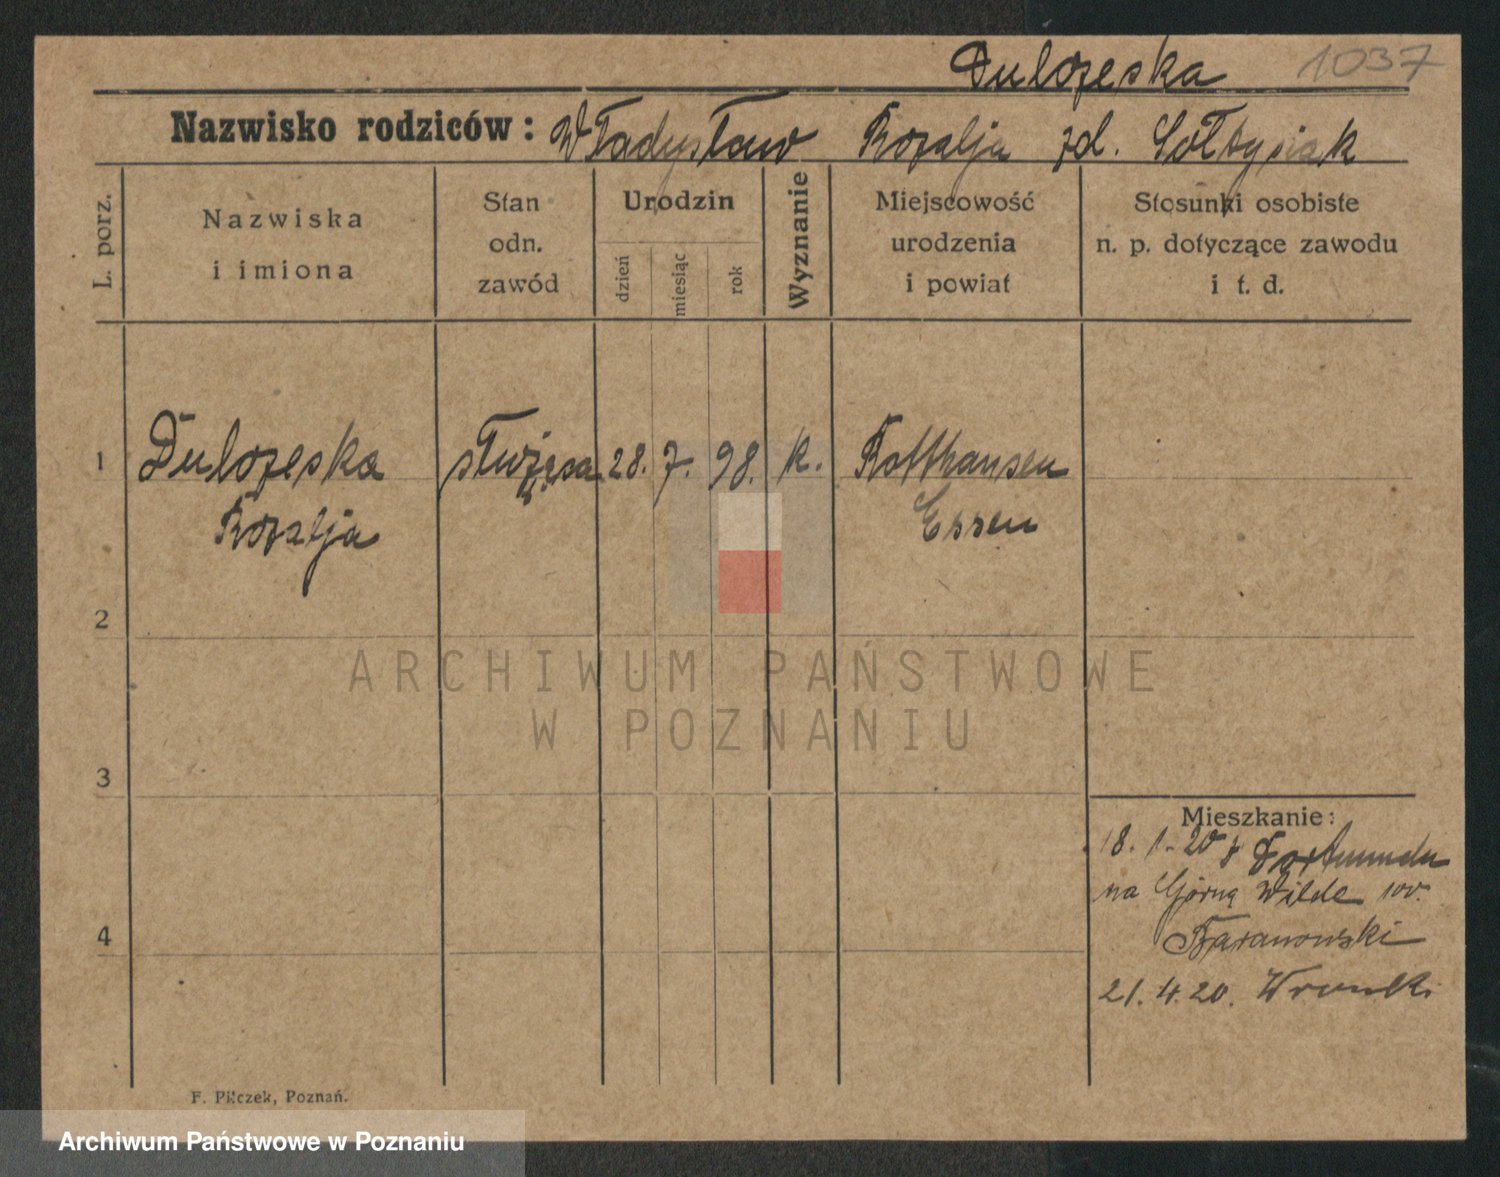 Dulozeska 1037
Nazwisko rodziców: Władysław Rozalja zd. Sołtysiak
L. porz.
Nazwiska
i imiona
Stan
odn.
zawód
Urodzin
dzień
miesiąc
rok
Wyznanie
Miejscowość
urodzenia
i powiat
Stosunki osobiste
n. p. dotyczące zawodu
i t. d.
1 Dulozeska służąca 28. 7. 98. k. Rotthausen
Rozalja Essen
2
3
4
Mieszkanie:
18. 1. 20 z Dortmundu
na Górną Wilde
Baranowski
21. 4. 20. Wronki
F. Pilczek, Poznań.
ARCHIWUM PAŃSTWOWE
W POZNANIU
Archiwum Państwowe w Poznaniu